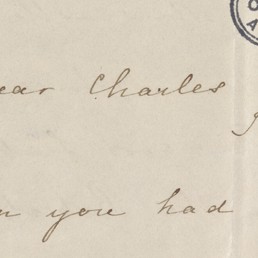 ear Charles
you had